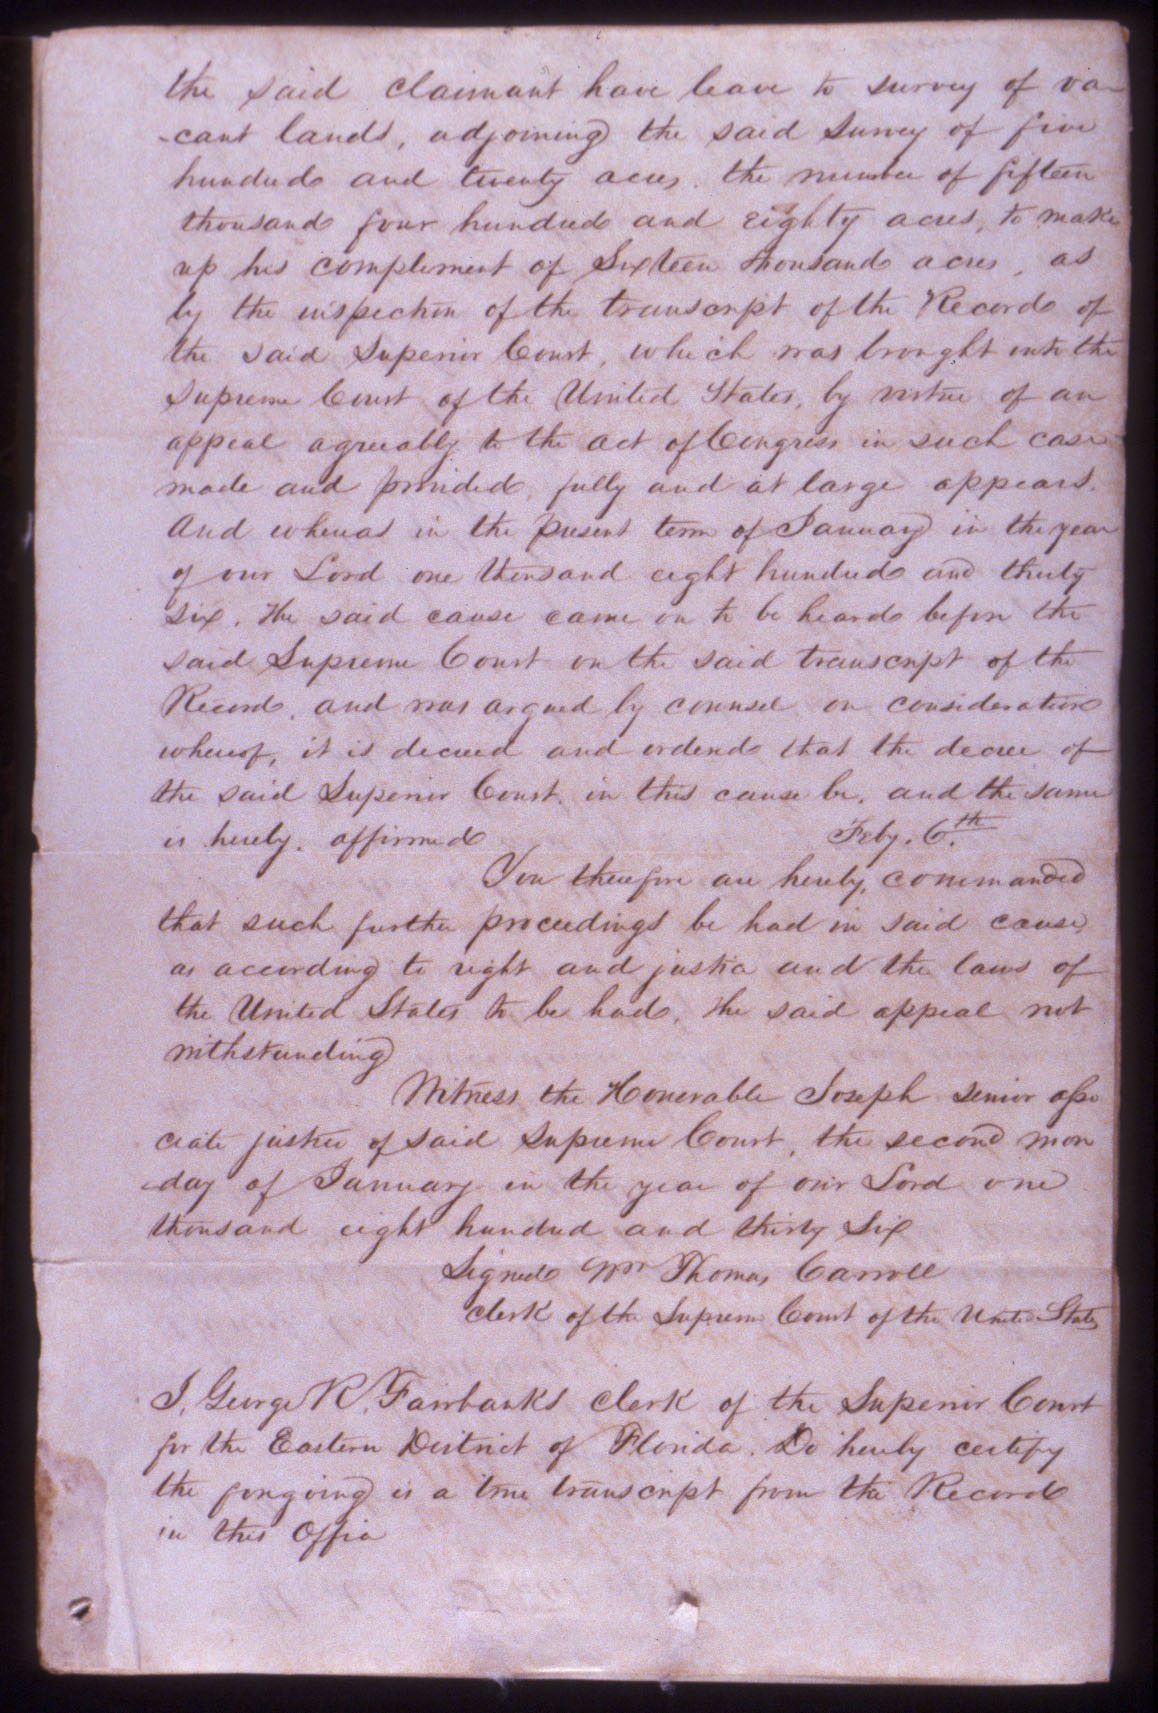 the said claimant have leave to survey of va-
-cant lands, adjoining the said survey of five
hundred and twenty acres, the number of fifteen
thousand four hundred and eighty acres, to make
up his compliment of Sixteen thousand acres, as
by the inspection of the transcript of the Record of
the said Superior Court, which was brought into the
Supreme Court of the United States, by virtue of an
appeal agreeably to the act of Congress in such case
made and provided, fully and at large appears.
And whereas in the present term of January in the year
of our Lord one thousand eight hundred and thirty
six. the said cause came on to be heard before the
said Supreme Court on the said transcript of the
Record, and was argued by counsel on consideration
whereof, it is decreed and ordered that the decree of
the said Superior Court in this cause be, and the same
is hereby, affirmed Feby. 6.th
You therefore are hereby commanded
that such further proceedings be had in said cause,
as according to right and justice and the laws of
the United States to be had, the said appeal not
withstanding
Witness the Honerable Joseph senior asso
ciate justice of said Supreme Court, the second mon
-day of January in the year of our Lord one
thousand eight hundred and thirty Six
Signed Wm Thomas Carroll
Clerk of the Supreme Court of the United States
I, George R. Fairbanks clerk of the Superior Court
for the Eastern District of Florida. Do hereby certify
the foregoing is a true transcript from the Record
in this Office